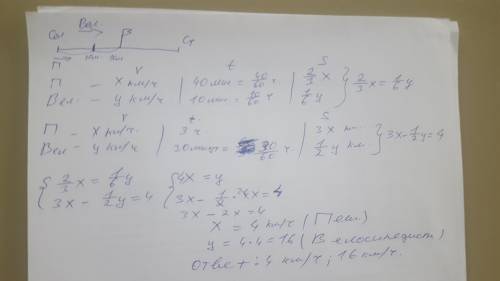 Вел.
Сел B Ст
П
v t S
П - x км/ч | 40 мин = 40/60 ч | 2/3 x } 2/3 x = 1/6 y
Вел. - y км/ч | 10 мин = 10/60 ч | 1/6 y
v t. S
П - x км/ч. | 3 ч. | 3x км. } 3x - 1/2 y = 4
Вел - y км/ч. | 30 мин = 30/60 ч. | 1/2 y км.
{ 2/3 x = 1/6 y { 4x = y
3x - 1/2 y = 4 3x - 1/2 · 4x = 4
3x - 2x = 4
x = 4 км/ч (Пеш.)
y = 4·4 = 16 (Велосипедист)
Ответ: 4 км/ч; 16 км/ч.